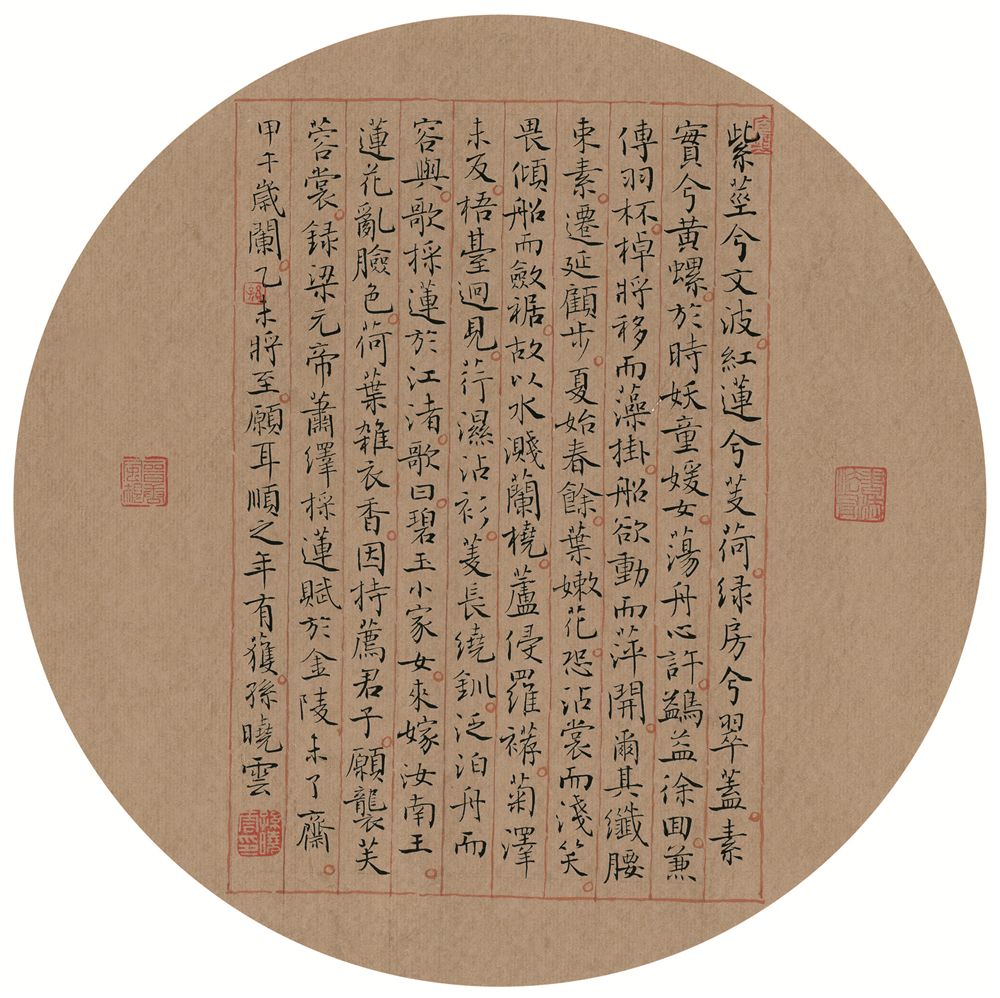 紫莖兮文波紅蓮兮芰荷绿房兮翠蓋素
實兮黄螺於時妖童媛女蕩舟心許鷁益徐回兼
傳羽杯棹將移而藻掛船欲動而萍開爾其纖腰
束素遷延顧步夏始春餘葉嫩花恐沾裳而淺笑
畏傾船而斂裾故以水濺蘭橈蘆侵羅袸菊澤
未反梧臺迥見荇濕沾衫菱長繞釧泛泊舟而
容與歌採蓮於江渚歌曰碧玉小家女來嫁汝南王
蓮花亂臉色荷葉雜衣香因持薦君子願襲芙
蓉裳録梁元帝蕭繹採蓮賦於金陵未了齋
甲午歲闌乙未將至願耳順之年有獲孫曉雲
孫曉雲印